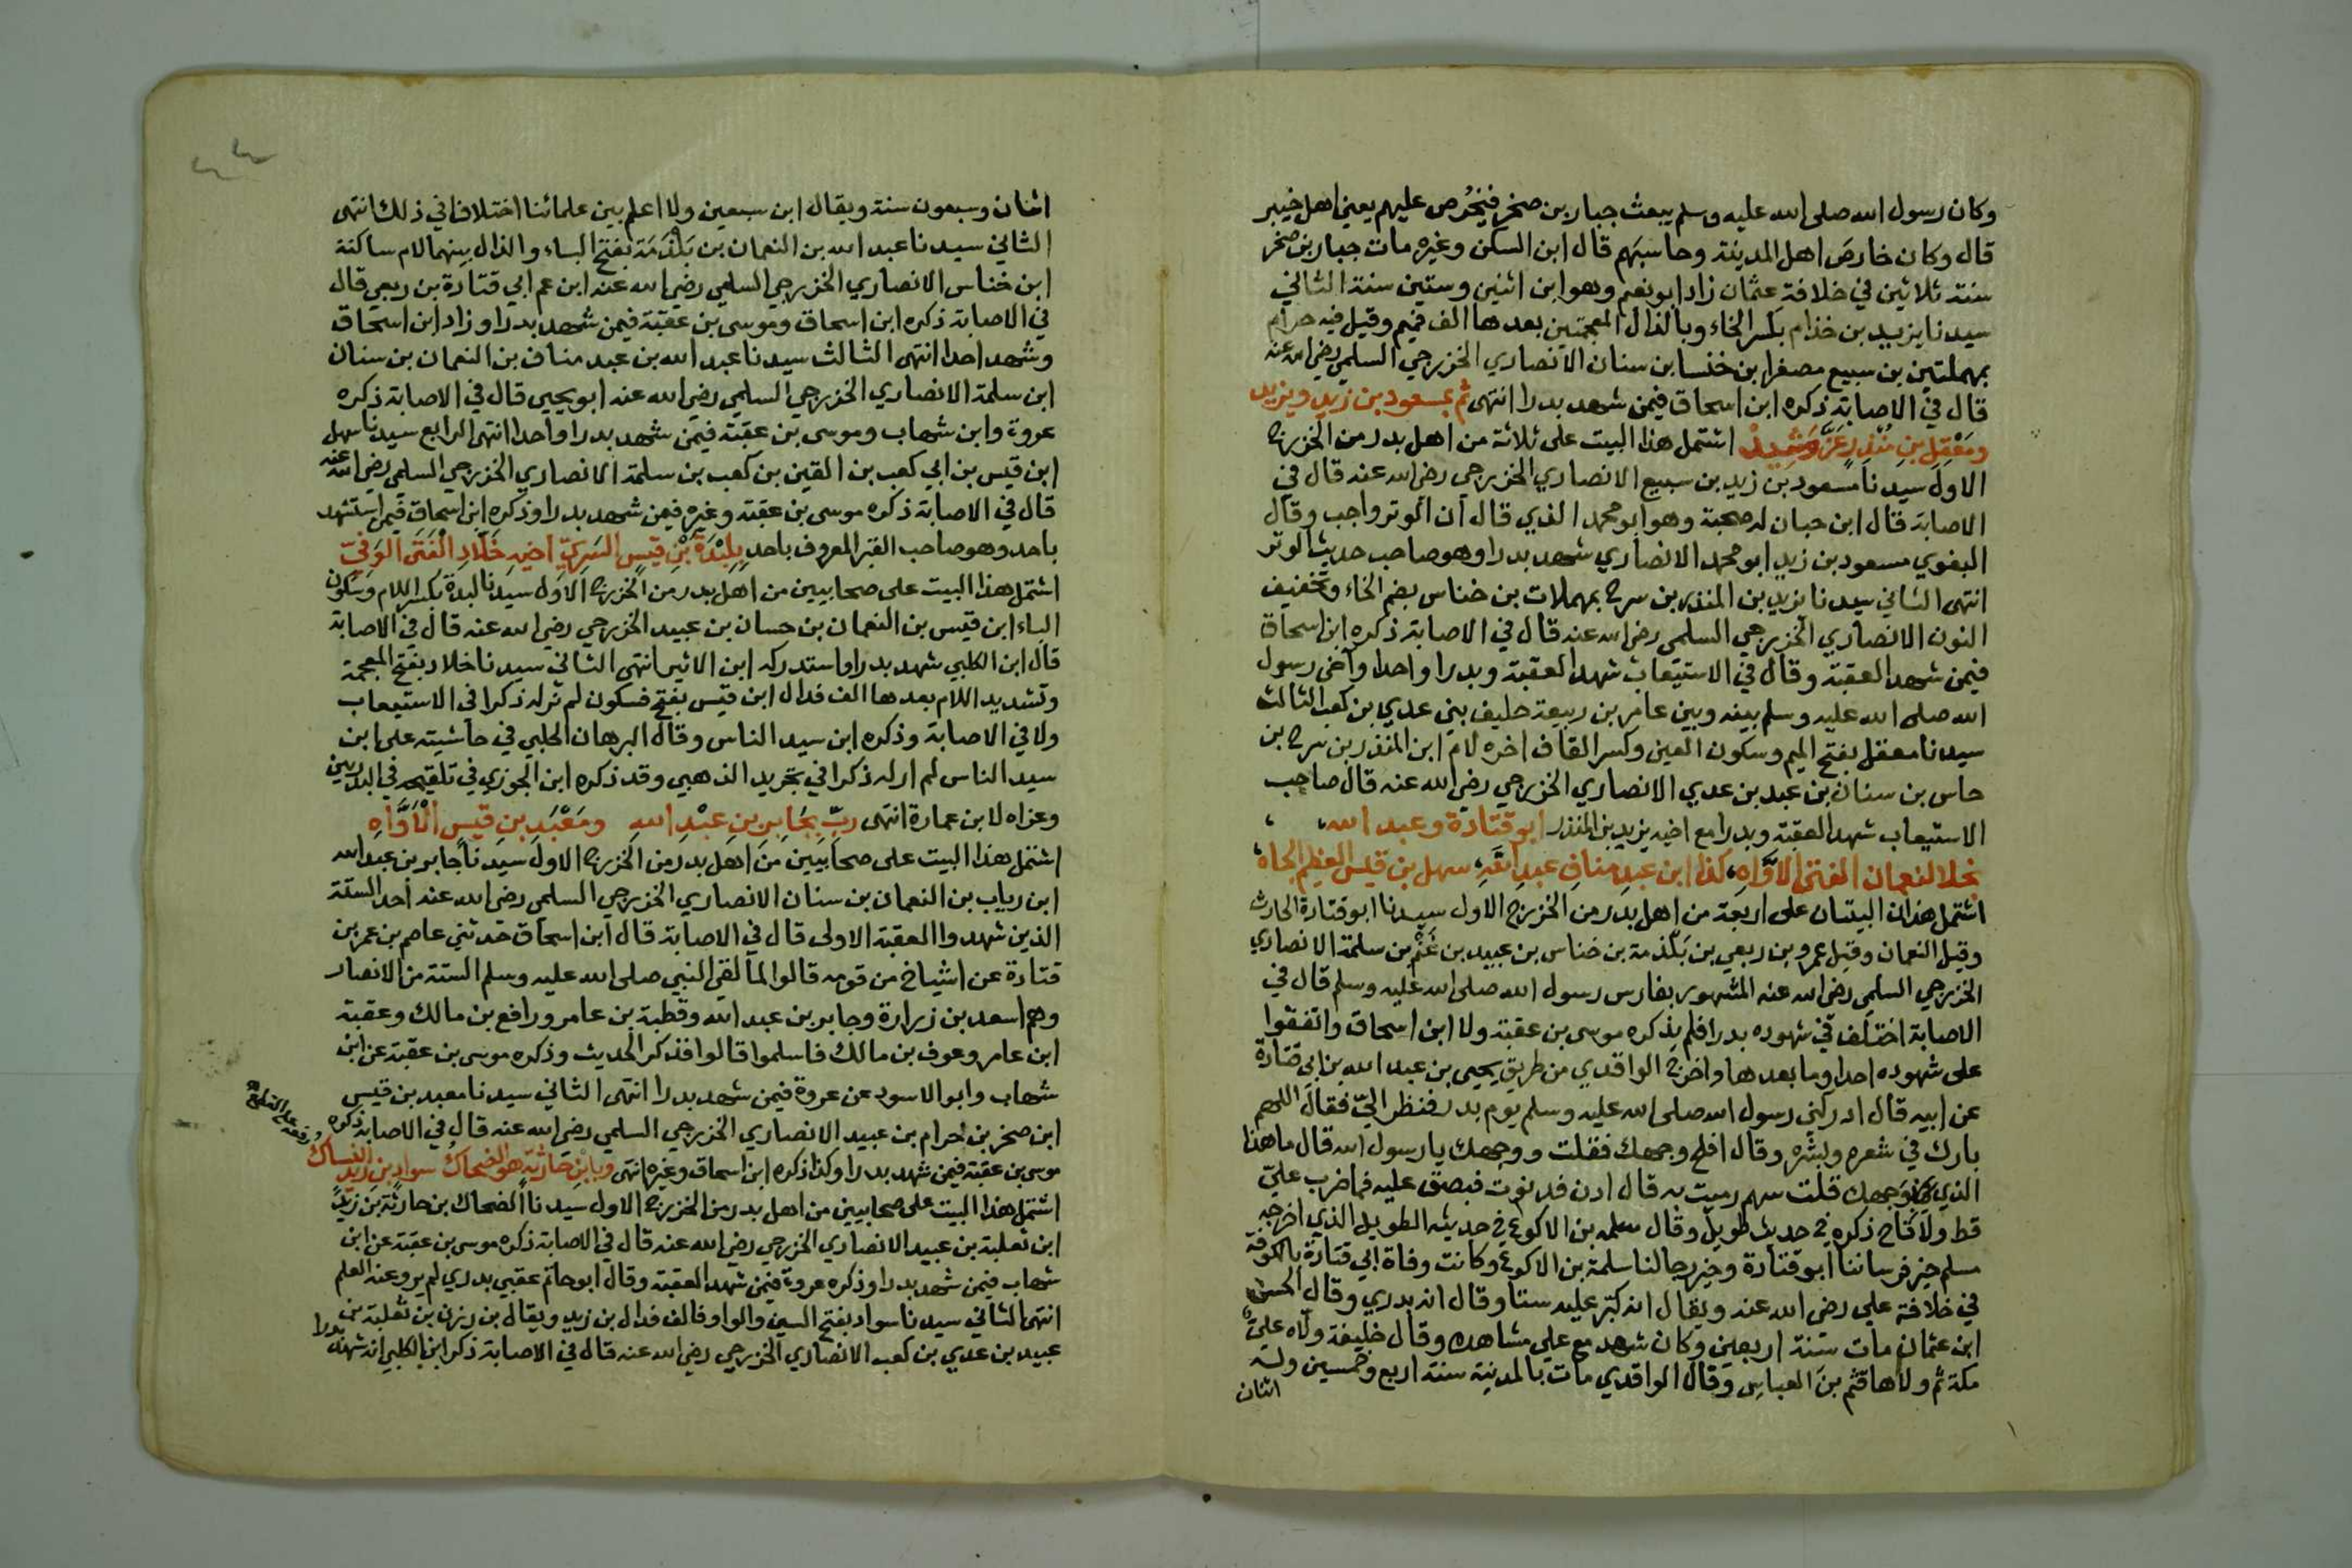 وكان رسول الله صلى الله عليه وسلم يبعث جبار بن صخر فيخرص عليهم يعني اهل خيبر
قال وكان خارص اهل المدينة وحاسبهم قال ابن السكن وغيره مات جبار بن صخر
سنة ثلاثين في خلافة عثمان زاد ابو نعيم وهو ابن اثنين وستين سنة الثاني
سيدنا يزيد بن خذام بكسر الخاء وبالذال المعجمتين بعدها الف فميم وقيل فيه حرام
بمهملتين بن سبيع مصغرا بن خنسا بن سنان الانصاري الخزرجي السلمي رضي الله عنه
قال في الاصابة ذكره ابن اسحاق فيمن شهد بدرا انتهى ثم بمسعود بن زيد ويزيد
ومعقل بن منذر عز اشتمل هذا البيت على ثلاثة من اهل بدر من الخزرج
الاول سيدنا مسعود بن زيد بن سبيع الانصاري الخزرجي رضي الله عنه قال في
الاصابة قال ابن حبان له صحبة وهو ابو محمد الذي قال ان الوتر واجب وقال
البغوي مسعود بن زيد ابو محمد الانصاري شهد بدرا وهو صاحب حديث الوتر
انتهى الثاني سيدنا يزيد بن المنذر بن سرح بمهملات بن خناس بضم الخاء وتخفيف
النون الانصاري الخزرجي السلمي رضي الله عنه قال في الاصابة ذكره ابن اسحاق
فيمن شهد العقبة وقال في الاستيعاب شهد العقبة وبدرا واحدا وآخى رسول
الله صلى الله عليه وسلم بينه وبين عامر بن ربيعة حليف بني عدي بن كعب الثالث
سيدنا معقل بفتح الميم وسكون العين وكسر القاف اخره لام ابن المنذر بن سرح بن
حاس بن سنان بن عبد بن عدي الانصاري الخزرجي رضي الله عنه قال صاحب
الاستيعاب شهد العقبة وبدرا مع اخيه يزيد بن المنذر ابو قتادة وعبد الله
نجلا النعمان الفتى الاواه كذا ابن عبد مناف عبد الله سهل بن قيس العظيم الجاه
اشتمل هذان البيتان على اربعة من اهل بدر من الخزرج الاول سيدنا ابو قتادة الحارث
وقيل النعمان وقيل عمرو بن ربعي بن بلذمة بن خناس بن عبيد بن غنم بن سلمة الانصاري
الخزرجي السلمي رضي الله عنه المشهور بفارس رسول الله صلى الله عليه وسلم قال في
الاصابة اختلف في شهوده بدرا فلم يذكره موسى بن عقبة ولا ابن اسحاق واتفقوا
على شهوده احدا وما بعدها واخرج الواقدي من طريق يحيى بن عبد الله بن ابي قتادة
عن ابيه قال ادركني رسول الله صلى الله عليه وسلم يوم بدر فنظر الي فقال اللهم
بارك في شعره وبشره وقال افلح وجهك فقلت ووجهك يا رسول الله قال ما هذا
الذي بوجهك قلت سهم رميت به قال ادن فدنوت فبصق عليه فما ضرب علي
قط ولا قاح ذكره في حديث طويل وقال سلمه بن الاكوع في حديثه الطويل الذي اخرجه
مسلم خير فرساننا ابو قتادة وخير رجالنا سلمة بن الاكوع وكانت وفاة ابي قتادة بالكوفة
في خلافة علي رضي الله عنه ويقال انه كبر عليه ستا وقال انه بدري وقال الحسن
ابن عثمان مات سنة اربعين وكان شهد مع علي مشاهده وقال خليفة ولاه علي
مكة ثم ولاها قثم بن العباس وقال الواقدي مات بالمدينة سنة اربع وخمسين وله
اثنان
اثنان وسبعون سنة ويقال ابن سبعين ولا اعلم بين علمائنا اختلافا في ذلك انتهى
الثاني سيدنا عبد الله بن النعمان بن بلذمة بفتح الباء والذال بينهما لام ساكنة
ابن خناس الانصاري الخزرجي السلمي رضي الله عنه ابن عم ابي قتادة بن ربعي قال
في الاصابة ذكره ابن اسحاق وموسى بن عقبة فيمن شهد بدرا وزاد ابن اسحاق
وشهد احدا انتهى الثالث سيدنا عبد الله بن عبد مناف بن النعمان بن سنان
ابن سلمة الانصاري الخزرجي السلمي رضي الله عنه ابو يحيى قال في الاصابة ذكره
عروة وابن شهاب وموسى بن عقبة فيمن شهد بدرا واحدا انتهى الرابع سيدنا سهل
ابن قيس بن ابي كعب بن القين بن كعب بن سلمة الانصاري الخزرجي السلمي رضي الله عنه
قال في الاصابة ذكره موسى بن عقبة وغيره فيمن شهد بدرا وذكره ابن اسحاق فيمن استشهد
باحد وهو صاحب القبر المعروف باحد بلبدة بن قيس السري اخيه خلاد الفتى الوفي
اشتمل هذا البيت على صحابيين من اهل بدر من الخزرج الاول سيدنا لبدة بكسر اللام وسكون
الباء ابن قيس بن النعمان بن حسان بن عبيد الخزرجي رضي الله عنه قال في الاصابة
قال ابن الكلبي شهد بدرا واستدركه ابن الاثير انتهى الثاني سيدنا خلاد بفتح المعجمة
وتشديد اللام بعدها الف فدال ابن قيس بفتح فسكون لم نر له ذكرا في الاستيعاب
ولا في الاصابة وذكره ابن سيد الناس وقال البرهان الحلبي في حاشيته على ابن
سيد الناس لم ار له ذكرا في تجريد الذهبي وقد ذكره ابن الجوزي في تلقيحه في البدريين
وعزاه لابن عمارة انتهى رب بجابر بن عبد الله ومعبد بن قيس الاواه
اشتمل هذا البيت على صحابيين من اهل بدر من الخزرج الاول سيدنا جابر بن عبد الله
ابن رياب بن النعمان بن سنان الانصاري الخزرجي السلمي رضي الله عنه احد الستة
الذين شهدوا العقبة الاولى قال في الاصابة قال ابن اسحاق حدثني عاصم بن عمر بن
قتادة عن اشياخ من قومه قالوا لما لقي النبي صلى الله عليه وسلم الستة من الانصار
وهم اسعد بن زرارة وجابر بن عبد الله وقطبة بن عامر ورافع بن مالك وعقبة
ابن عامر وعوف بن مالك فاسلموا قالوا فذكر الحديث وذكره موسى بن عقبة عن ابن
شهاب وابو الاسود عن عروة فيمن شهد بدرا انتهى الثاني سيدنا معبد بن قيس
ابن صخر بن حرام بن عبيد الانصاري الخزرجي السلمي رضي الله عنه قال في الاصابة ذكره
موسى بن عقبة فيمن شهد بدرا وكذا ذكره ابن اسحاق وغيره انتهى وبابن حارثة هو الضحاك سواد بن زيد النساك
اشتمل هذا البيت على صحابيين من اهل بدر من الخزرج الاول سيدنا الضحاك بن حارثة بن زيد
ابن ثعلبة بن عبيد الانصاري الخزرجي رضي الله عنه قال في الاصابة ذكره موسى بن عقبة عن ابن
شهاب فيمن شهد بدرا وذكره عروة فيمن شهد العقبة وقال ابو حاتم عقبي بدري لم يرو عنه العلم
انتهى الثاني سيدنا سواد بفتح السين والواو فالف فدال بن زيد ويقال بن رزن بن ثعلبة بن
عبيد بن عدي بن كعب الانصاري الخزرجي رضي الله عنه قال في الاصابة ذكر ابن الكلبي انه شهد بدرا